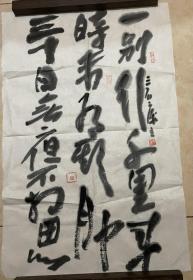 一别行千里来
時未有期月中
三十日无夜不相思